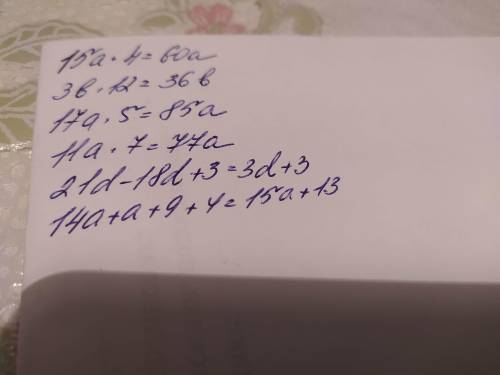 15a · 4 = 60a
3в · 12 = 36в
17a · 5 = 85a
11a · 7 = 77a
21d - 18d + 3 = 3d + 3
14a + a + 9 + 4 = 15a + 13